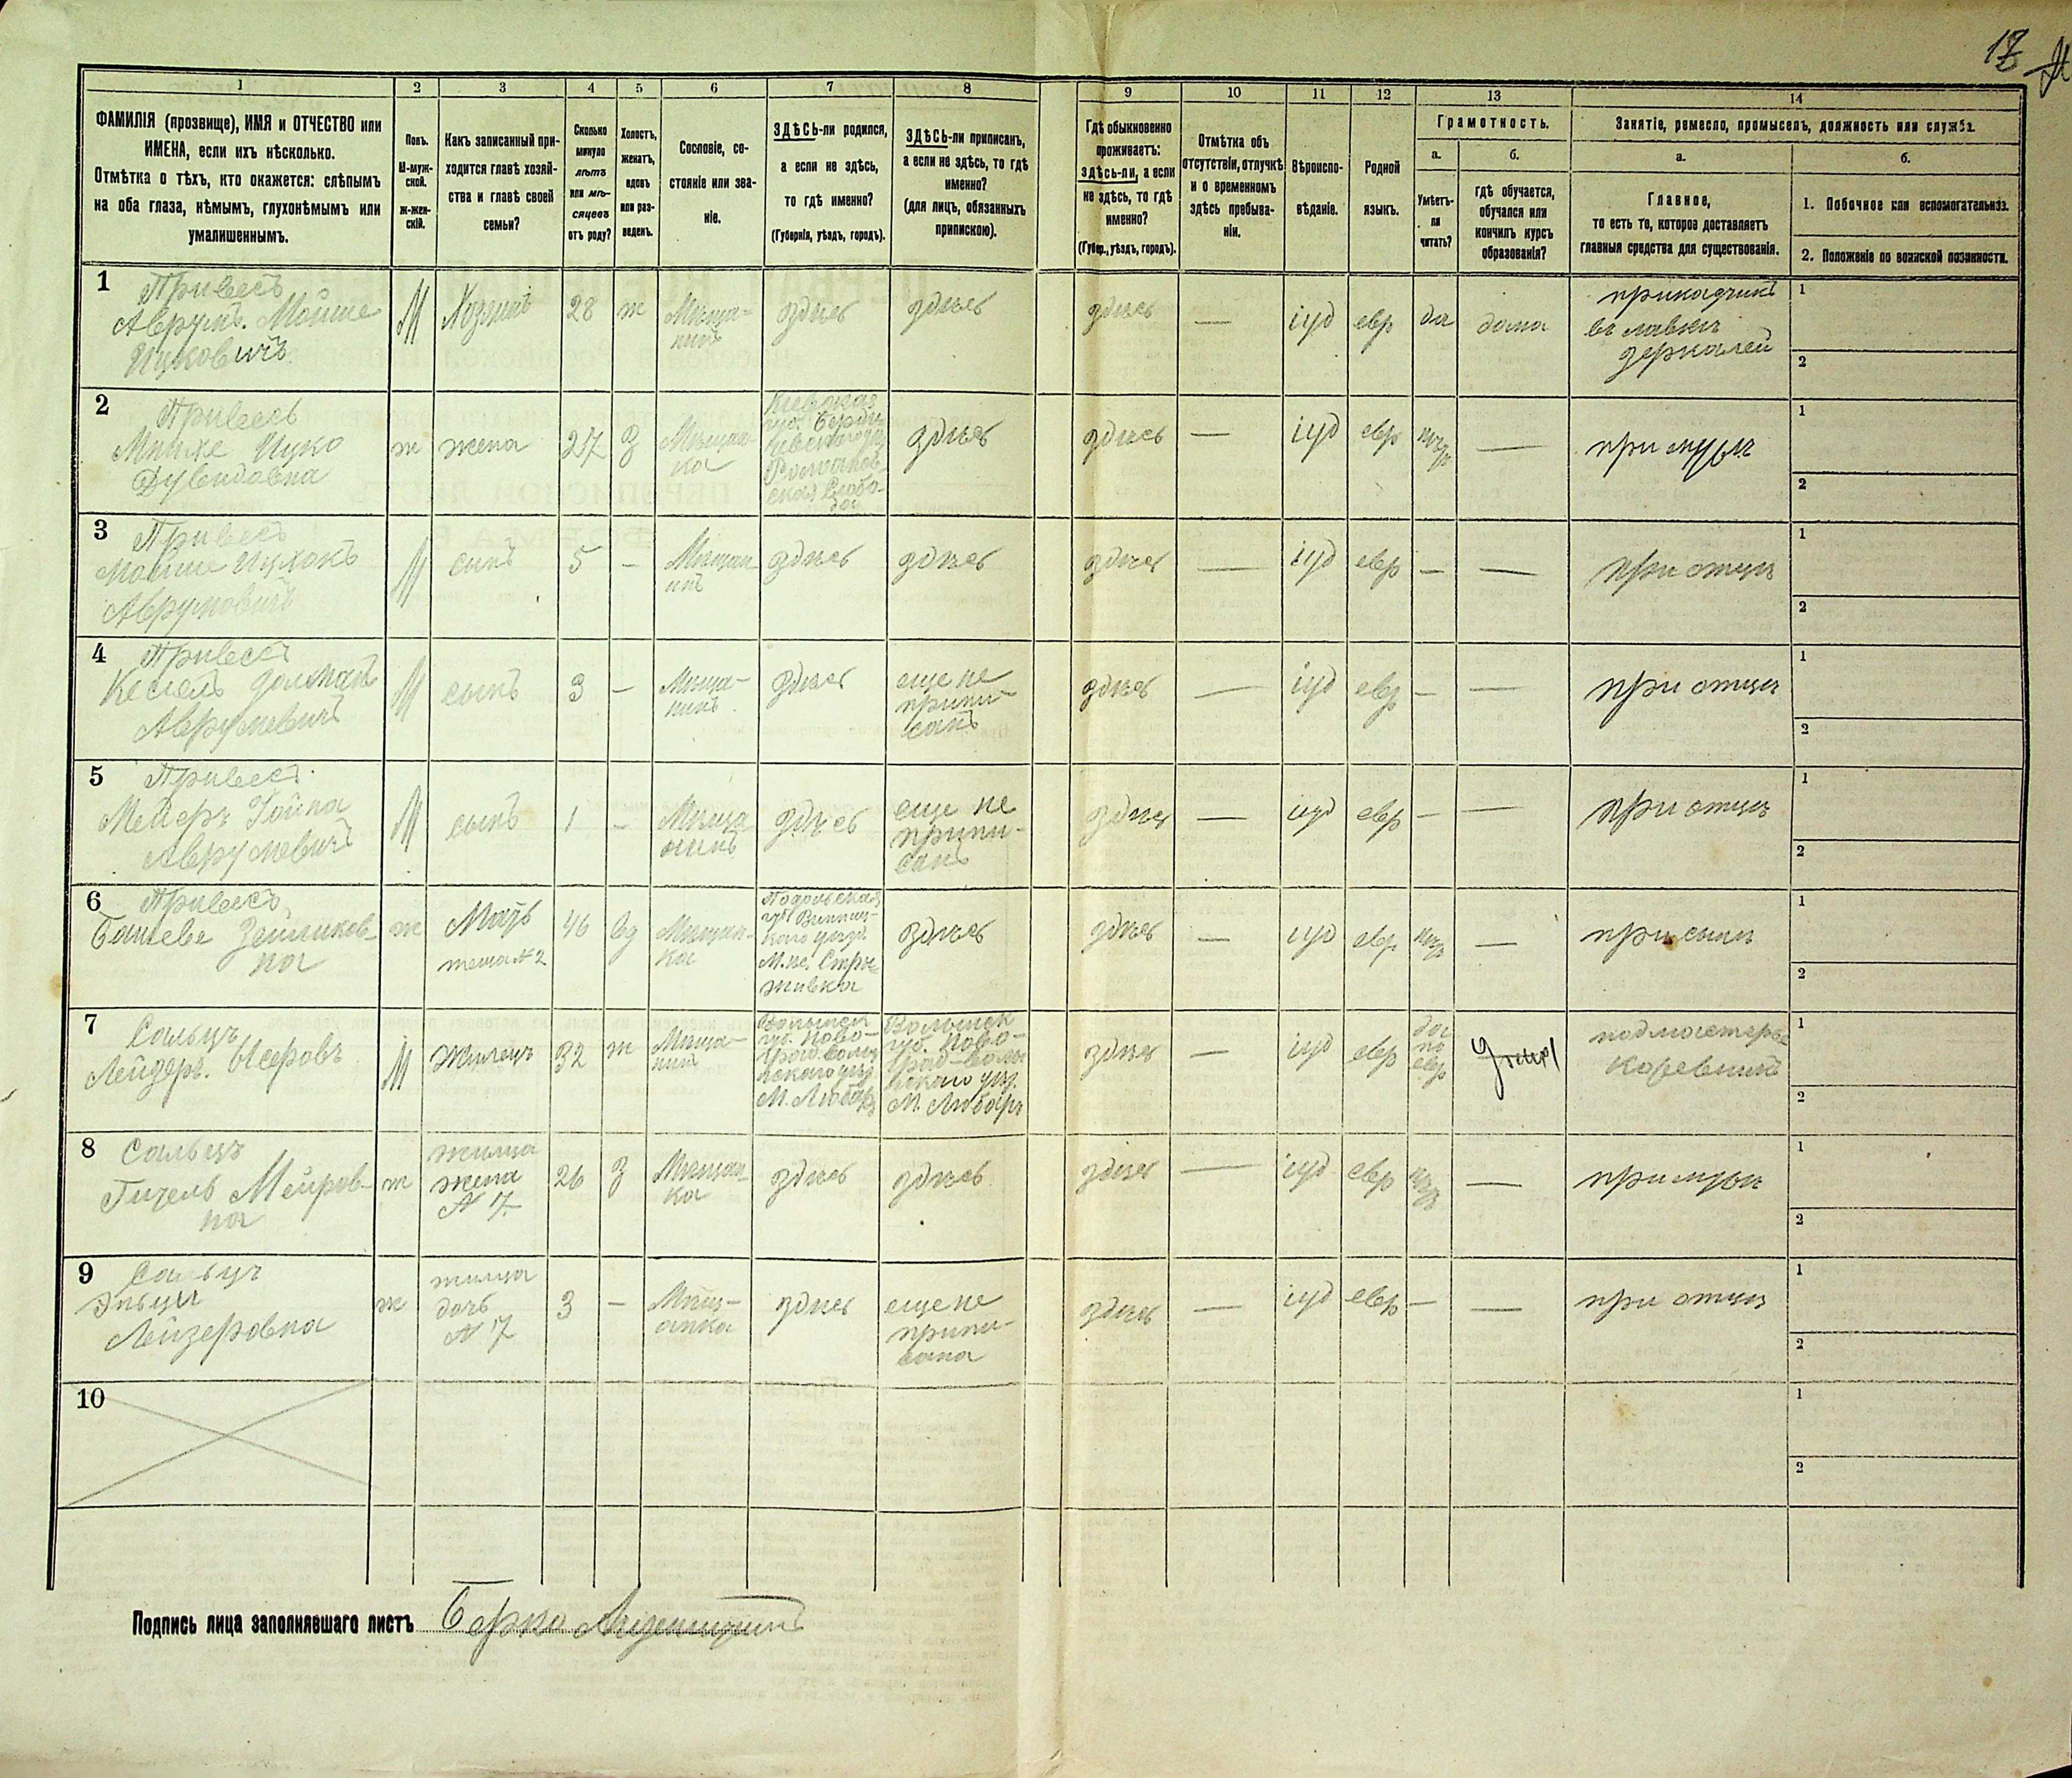 17
1
2
3
4
5
6
7
8
9
10
11
12
13
14
ФАМИЛІЯ (прозвище), ИМЯ и ОТЧЕСТВО или
ИМЕНА, если ихъ нѣсколько.
Отмѣтка о тѣхъ, кто окажется: слѣпымъ
на оба глаза, нѣмымъ, глухонѣмымъ или
умалишеннымъ.
Полъ.
М-муж-
ской.
ж-жен-
скій.
Какъ записанный при-
ходится главѣ хозяй-
ства и главѣ своей
семьи?
Сколько
минуло
лѣтъ
или мѣ-
сяцевъ
отъ роду?
Холостъ,
женатъ,
вдовъ
или раз-
веденъ.
Сословіе, со-
стояніе или зва-
ніе.
ЗДѢСЬ-ли родился,
а если не здѣсь,
то гдѣ именно?
(Губернія, уѣздъ, городъ).
ЗДѢСЬ-ли приписанъ,
а если не здѣсь, то гдѣ
именно?
(для лицъ, обязанныхъ
припискою).
Гдѣ обыкновенно
проживаетъ:
здѣсь-ли, а если
не здѣсь, то гдѣ
именно?
(Губер., уѣздъ, городъ).
Отмѣтка объ
отсутствіи, отлучкѣ
и о временномъ
здѣсь пребыва-
ніи.
Вѣроиспо-
вѣданіе.
Родной
языкъ.
Грамотность.
а.
Умѣетъ-
ли
читать?
б.
гдѣ обучается,
обучался или
кончилъ курсъ
образованія?
Занятіе, ремесло, промыселъ, должность или служба.
а.
Главное,
то есть то, которое доставляетъ
главныя средства для существованія.
б.
1. Побочное или вспомогательное.
2. Положеніе по воинской повинности.
1
Привесъ
Аврумъ. Мойше
Ицковичъ
М
Хозяинъ
28
ж
Мѣща-
нинъ
здѣсь
здѣсь
здѣсь
—
іуд
евр
да
дома
прикащикъ
въ лавкѣ
зеркалей
1
2
2
Привесъ
Минхе Цуко
Дувидовна
ж
жена
27
З
Мѣщан-
ка
Кіевская
губ. Берди-
чевскаго уѣз
Романов-
ская Слобо-
да
здѣсь
здѣсь
—
іуд
евр
нѣтъ
—
при мужѣ
1
2
3
Привесъ
Мойше Ицхокъ
Аврумовичъ
М
сынъ
5
—
Мѣщан
инъ
здѣсь
здѣсь
здѣсь
—
іуд
евр
—
—
при отцѣ
1
2
4
Привесъ
Кесіель Долманъ
Аврумовичъ
М
сынъ
3
—
Мѣща-
нинъ
здѣсь
еще не
припи-
санъ
здѣсь
—
іуд
евр
—
—
при отцѣ
1
2
5
Привесъ
Мейеръ Іойна
Аврумовичъ
М
сынъ
1
—
Мѣща
нинъ
здѣсь
еще не
припи-
санъ
здѣсь
—
іуд
евр
—
—
при отцѣ
1
2
6
Привесъ
Башева Зейликов-
на
ж
Мать
теща №2
46
вд
Мѣщан-
ка
Подольская
губ Винниц-
каго уѣзд.
М-ка. Стры-
жавка
здѣсь
здѣсь
—
іуд
евр
нѣтъ
—
при сынѣ
1
2
7
Сальцъ
Лейзеръ. Исеровъ
М
Жилецъ
32
ж
Мѣща-
нинъ
Волынск
губ. Ново-
град-волы
нскаго уѣз
М. Любаръ
Волынск
губ. Ново-
град-волы
нскаго уѣз.
М. Любаръ
здѣсь
—
іуд
евр
да
по
евр
подмастерье
1
2
8
Сальцъ
Гитель Мейров-
на
ж
жилица
жена
№ 7.
26
З
Мѣщан-
ка
здѣсь
здѣсь
здѣсь
—
іуд
евр
нѣтъ
—
при мужѣ
1
2
9
Сальцъ
Лейзеровна
ж
жилица
дочь
№ 7
3
—
Мѣщ-
анка
здѣсь
еще не
припи-
сана
здѣсь
—
іуд
евр
—
—
при отцѣ
1
2
10
1
2
Подпись лица заполнявшаго листъ Берко